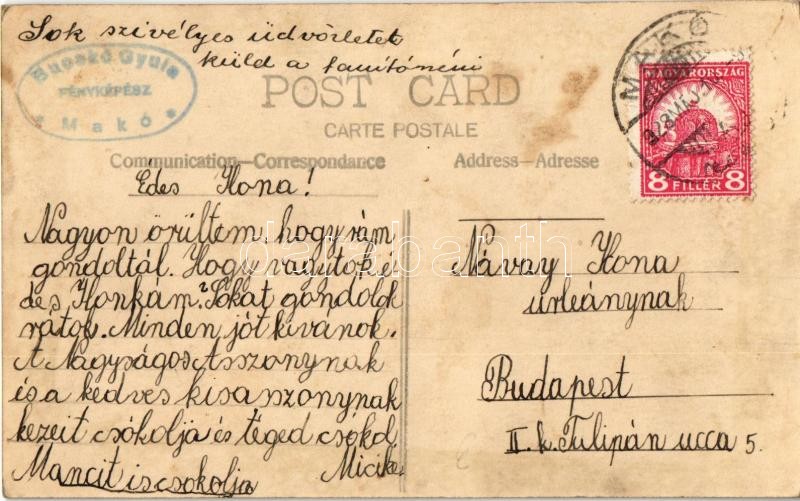 Sok szivélyes üdvözletet
küld a tanítónéni
Bucskó Gyula
FÉNYKÉPÉSZ
Makó
POST CARD
CARTE POSTALE
Communication-Correspondance
Address-Adresse
MAKÓ
928
MAGYARORSZÁG
8 FILLÉR 8
Édes Ilona!
Nagyon örültem, hogy rám
gondoltál. Hogy vagytok é-
des Ilonkám? Sokat gondolok
rátok. Minden jót kivánok.
A Nagyságos Asszonynak
és a kedves kisasszonynak
kezeit csókolja és téged csókol
Mancit is csokolja Micike
Návay Ilona
úrleánynak
Budapest
II. k. Tulipán ucca 5.
darabanth